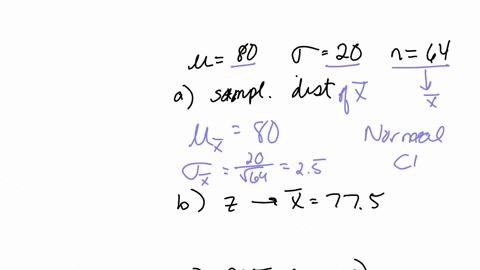 μ = 80 σ = 20 n = 64
a) sampl. dist of x̄ x̄
μx̄ = 80 Normal
σx̄ = 20/√64 = 2.5 CL
b) z → x̄ = 77.5